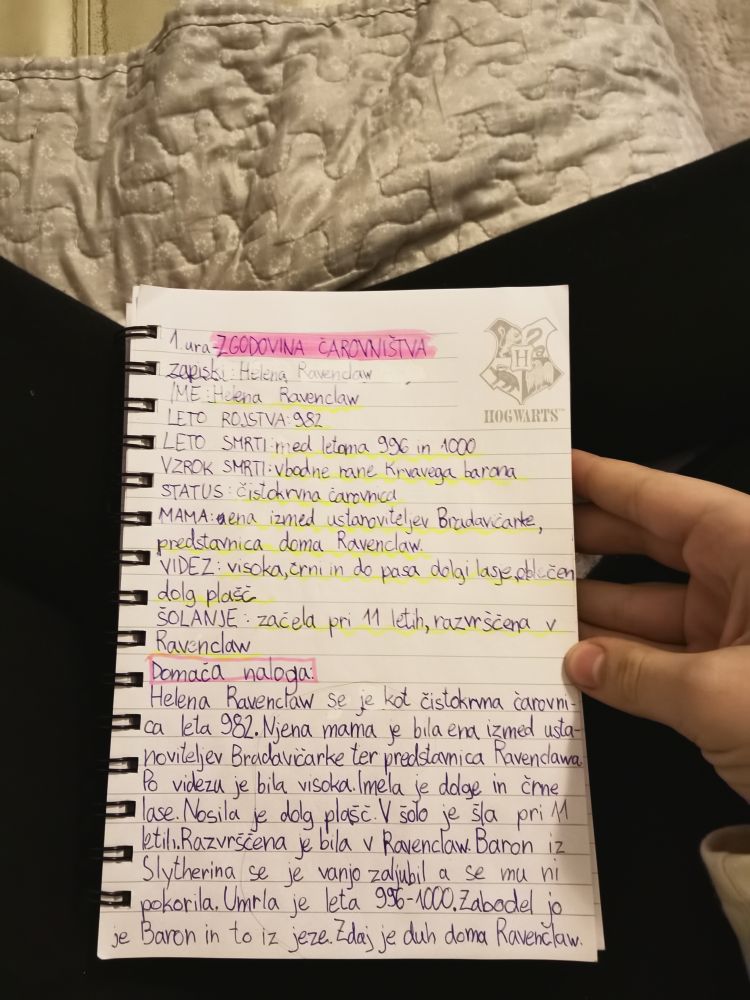 1. ura-ZGODOVINA ČAROVNIŠTVA
zapiski: Helena Ravenclaw
IME: Helena Ravenclaw
HOGWARTS™
LETO ROJSTVA: 982
LETO SMRTI: med letoma 996 in 1000
VZROK SMRTI: vbodne rane Krvavega barona
STATUS: čistokrvna čarovnica
MAMA: ena izmed ustanoviteljev Bradavičarke,
predstavnica doma Ravenclaw
VIDEZ: visoka, črni in do pasa dolgi lasje, oblečen
dolg plašč
ŠOLANJE: začela pri 11 letih, razvrščena v
Ravenclaw
Domača naloga:
Helena Ravenclaw se je kot čistokrvna čarovni-
ca leta 982. Njena mama je bila ena izmed usta-
noviteljev Bradavičarke ter predstavnica Ravenclawa.
Po videzu je bila visoka. Imela je dolge in črne
lase. Nosila je dolg plašč. V šolo je šla pri 11
letih. Razvrščena je bila v Ravenclaw. Baron iz
Slytherina se je vanjo zaljubil a se mu ni
pokorila. Umrla je leta 996-1000. Zabodel jo
je Baron in to iz jeze. Zdaj je duh doma Ravenclaw.